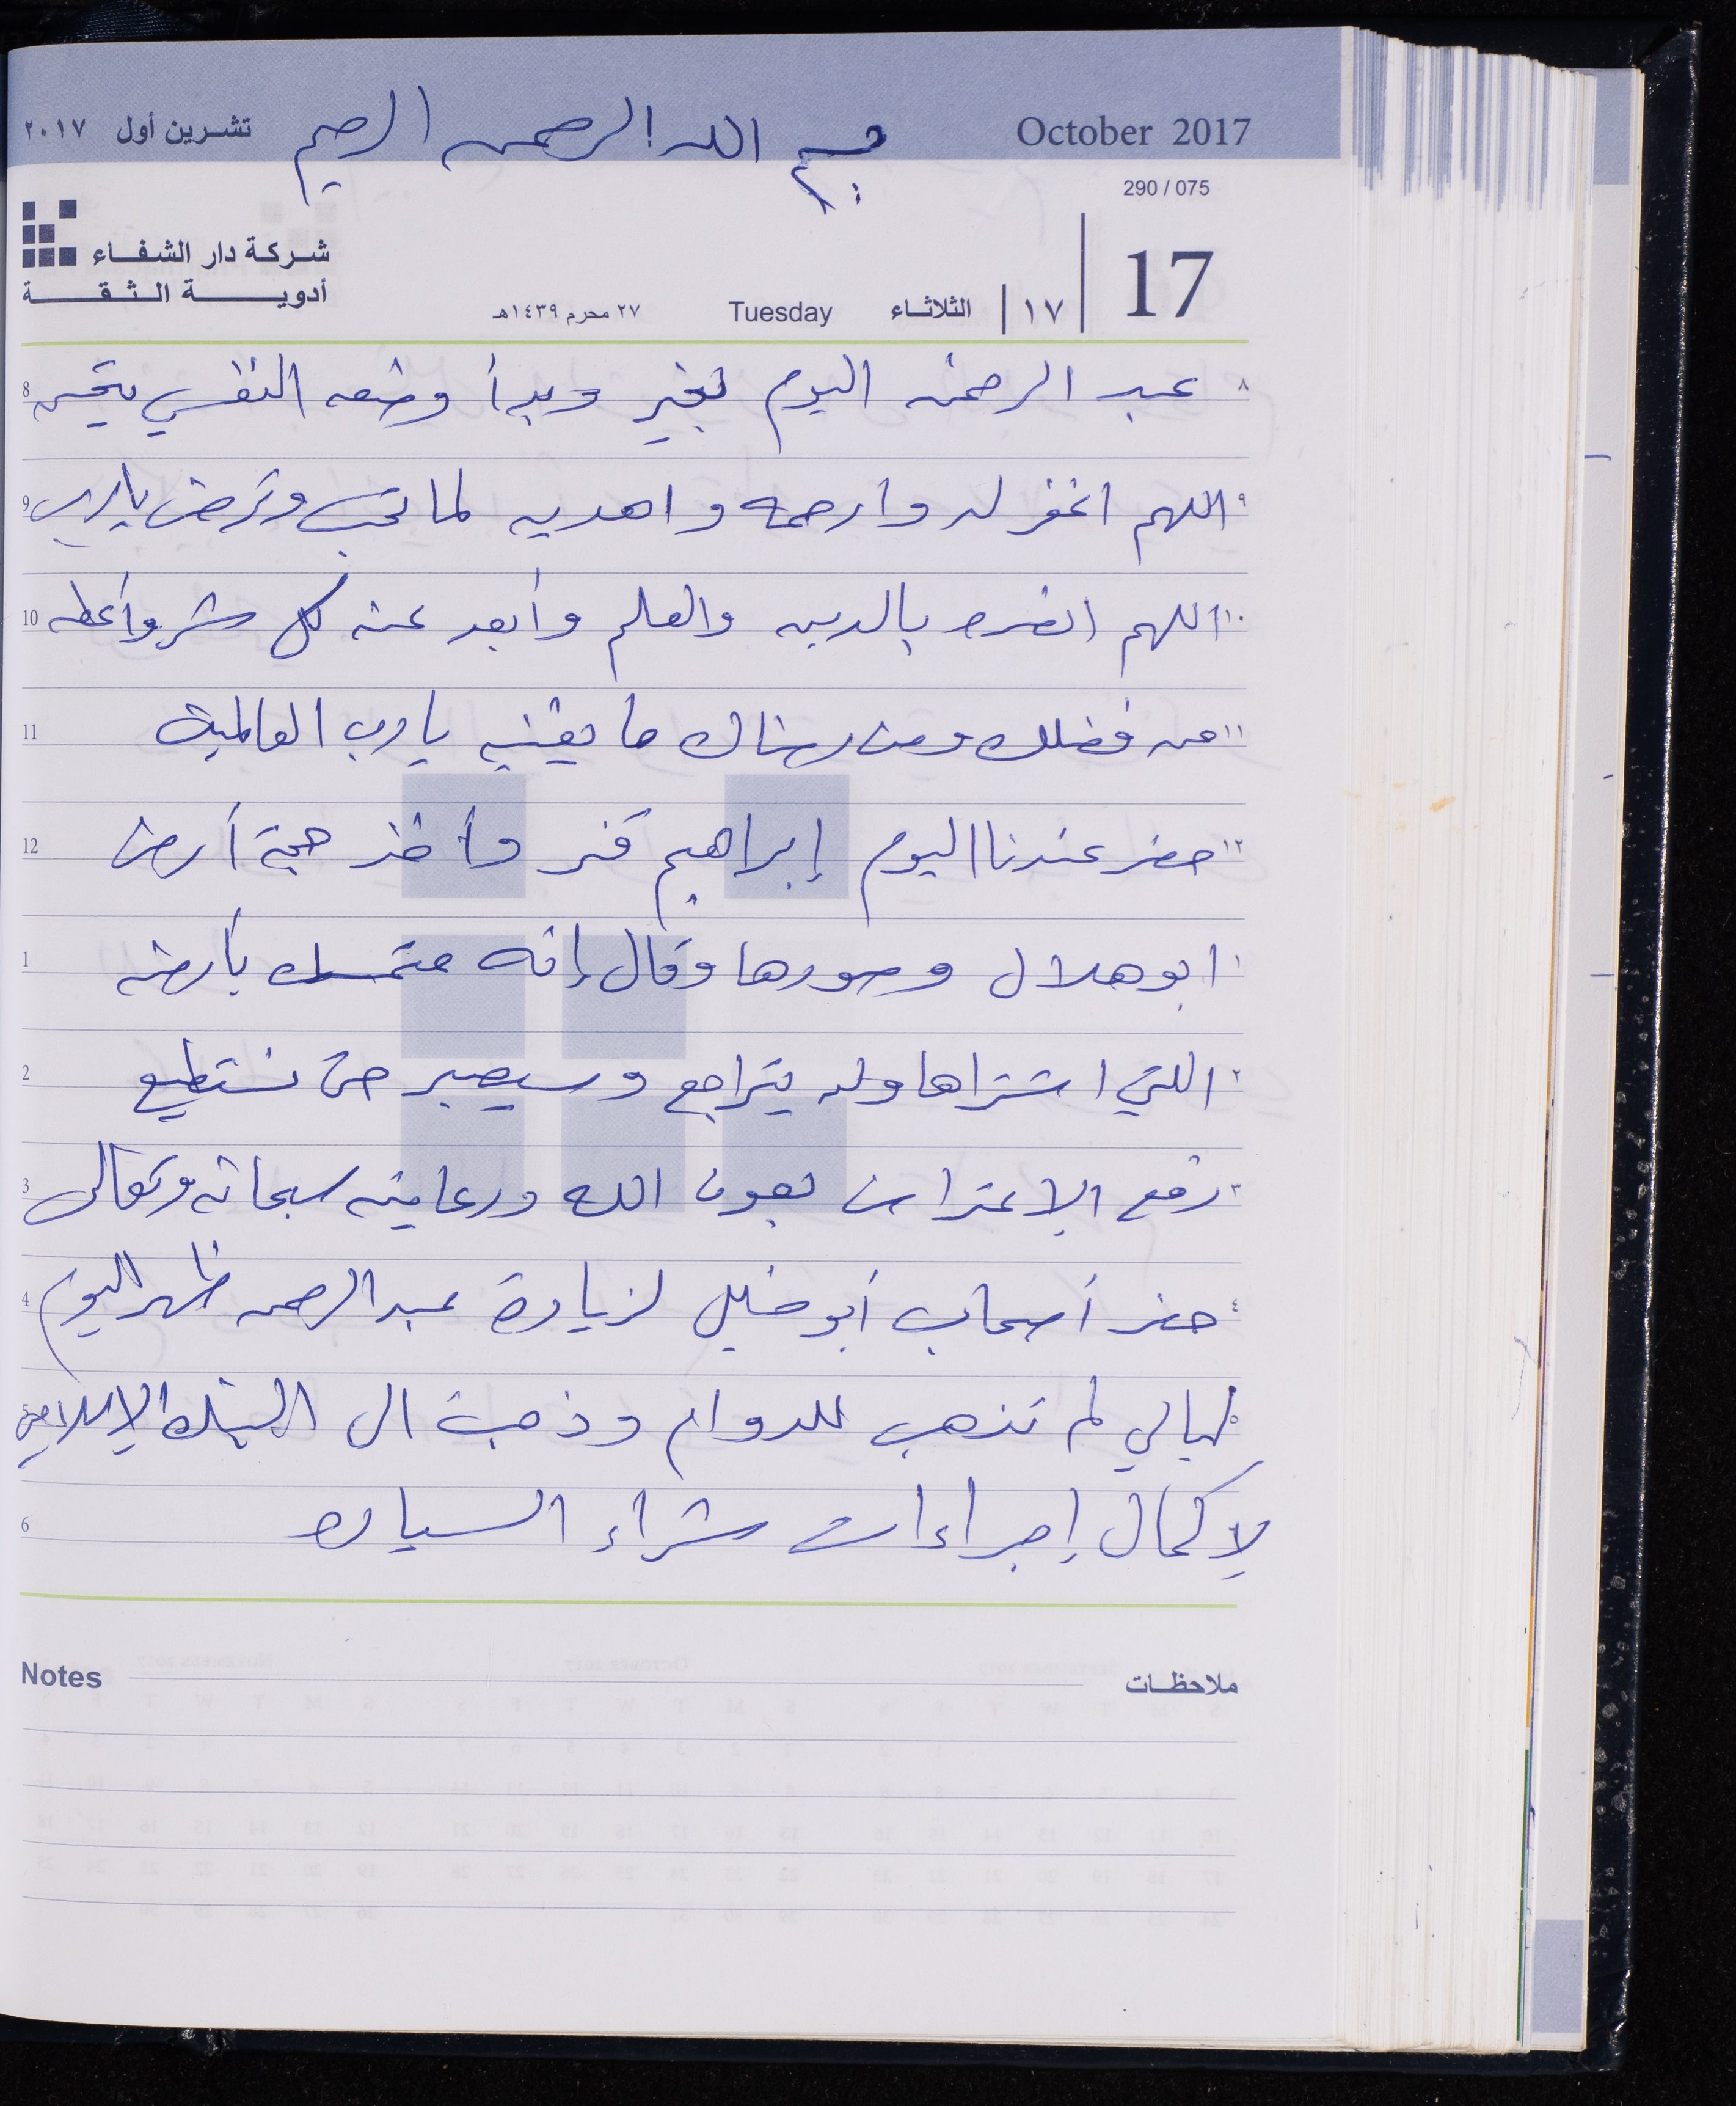 October 2017
بسم الله الرحمن الرحيم
تشرين أول ٢٠١٧
290 / 075
شركة دار الشفاء
أدوية الثقة
17
١٧ الثلاثاء Tuesday ٢٧ محرم ١٤٣٩هـ
٨ عبد الرحمن اليوم بخير وبدأ وضعه النفسي يتحسن 8
٩ اللهم اغفر له وارحمه واهديه لما تحب وترضى يا رب 9
١٠ اللهم انصره بالدين والعلم وأبعد عنه كل شر وأعطه 10
١١ من فضلك ومن رضاك ما يغنيه يا رب العالمين 11
١٢ حضر عندنا اليوم إبراهيم وأخذ حجة أرض 12
١ ابو هلال وصورها وقال إنه متمسك بأرضه 1
٢ التي اشتراها ولن يتراجع وسيصبر حتى نستطيع 2
٣ رفع الاعتراض بعون الله ورعايته سبحانه وتعالى 3
٤ حضر أصحاب أبو خليل لزيارة عبد الرحمن ظهر اليوم 4
نهالي لم تذهب للدوام وذهبت الى البنك الإسلامي 5
لإكمال إجراءات شراء السيارة 6
Notes ملاحظات